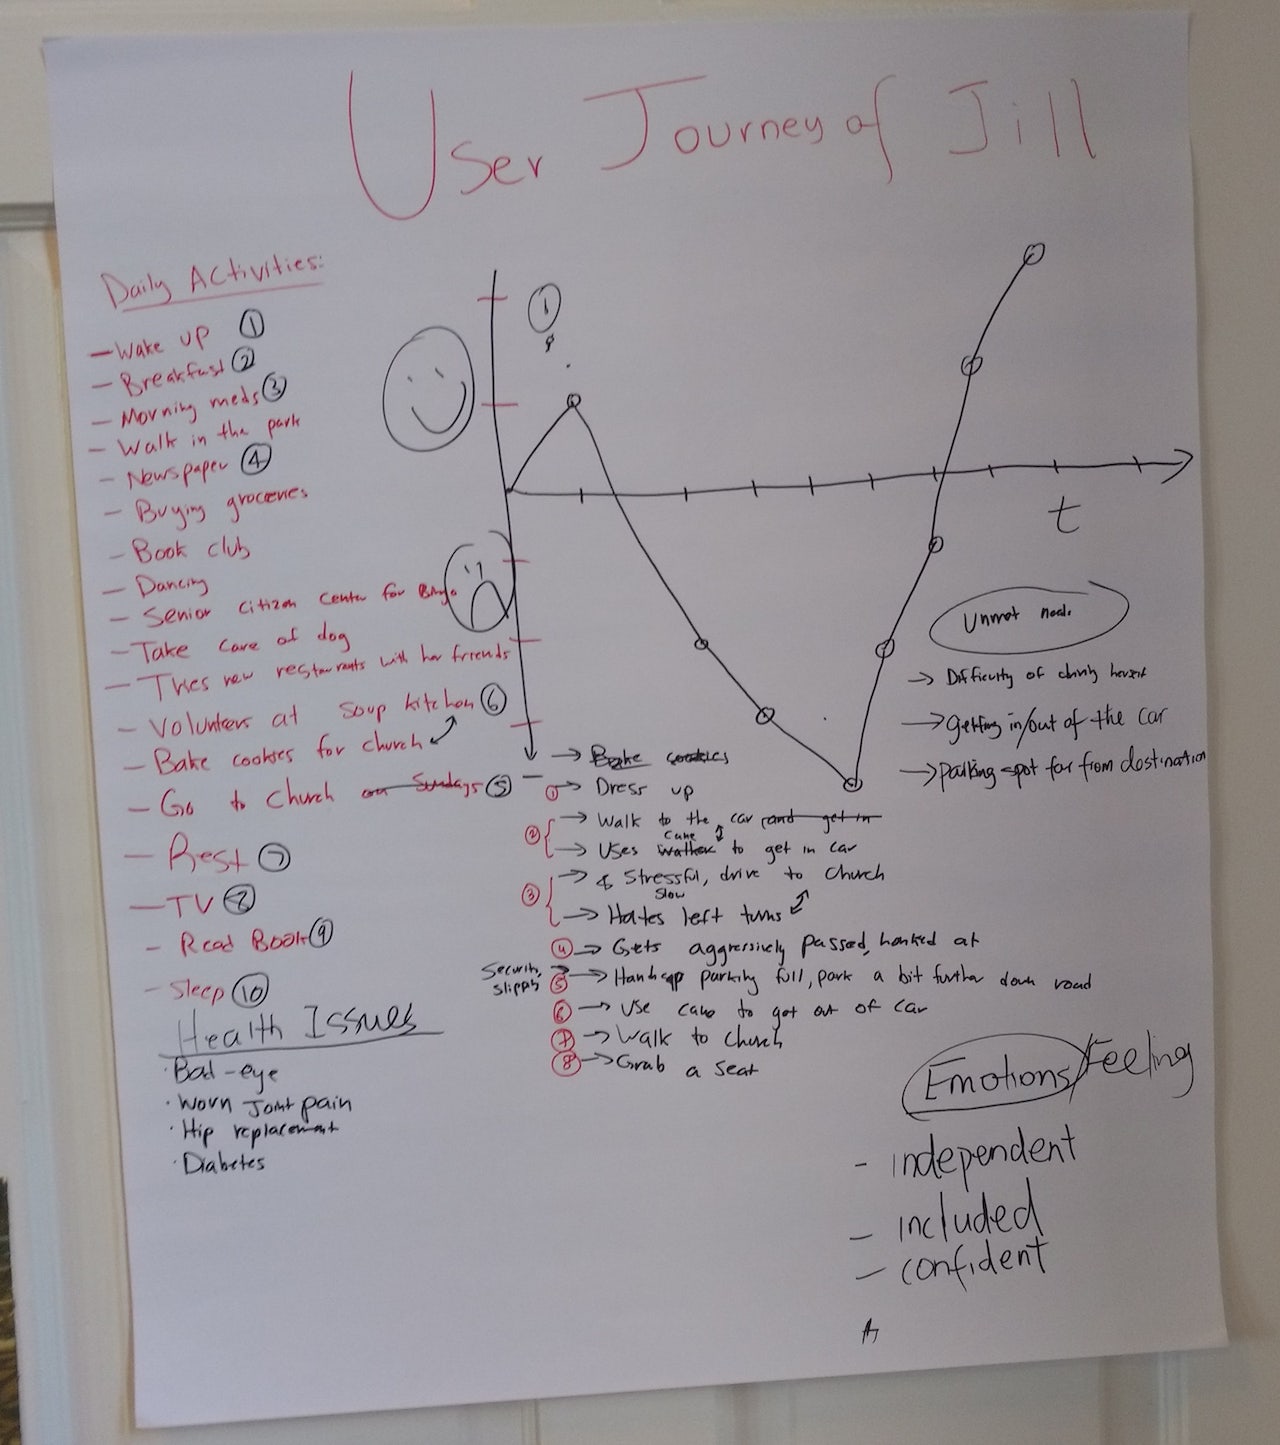 User Journey of Jill
Daily Activities:
— Wake up ①
— Breakfast ②
— Morning meds ③
— Walk in the park
— Newspaper ④
— Buying groceries
— Book club
— Dancing
— Senior Citizen Center for Bingo
— Take care of dog
— Tries new restaurants with her friends
— Volunteers at soup kitchen ⑥
— Bake cookies for church
— Go to church on Sundays ⑤
— Rest ⑦
— TV ⑧
— Read Book ⑨
— Sleep ⑩
Health Issues
· Bad-eye
· Worn Joint pain
· Hip replacement
· Diabetes
①
t
→ Bake cookies
① → Dress up
② → Walk to the car (and get in
cane
→ Uses walker to get in car
③ → & Stressful, drive to church
slow
→ Hates left turns
④ → Gets aggressively passed, honked at
Security,
slippy
⑤ → Handicap parking full, park a bit further down road
⑥ → Use cane to get out of car
⑦ → Walk to church
⑧ → Grab a seat
Unmet needs
→ Difficulty of
→ getting in/out of the car
→ parking spot far from destination
Emotions/Feeling
- independent
- included
- confident
A